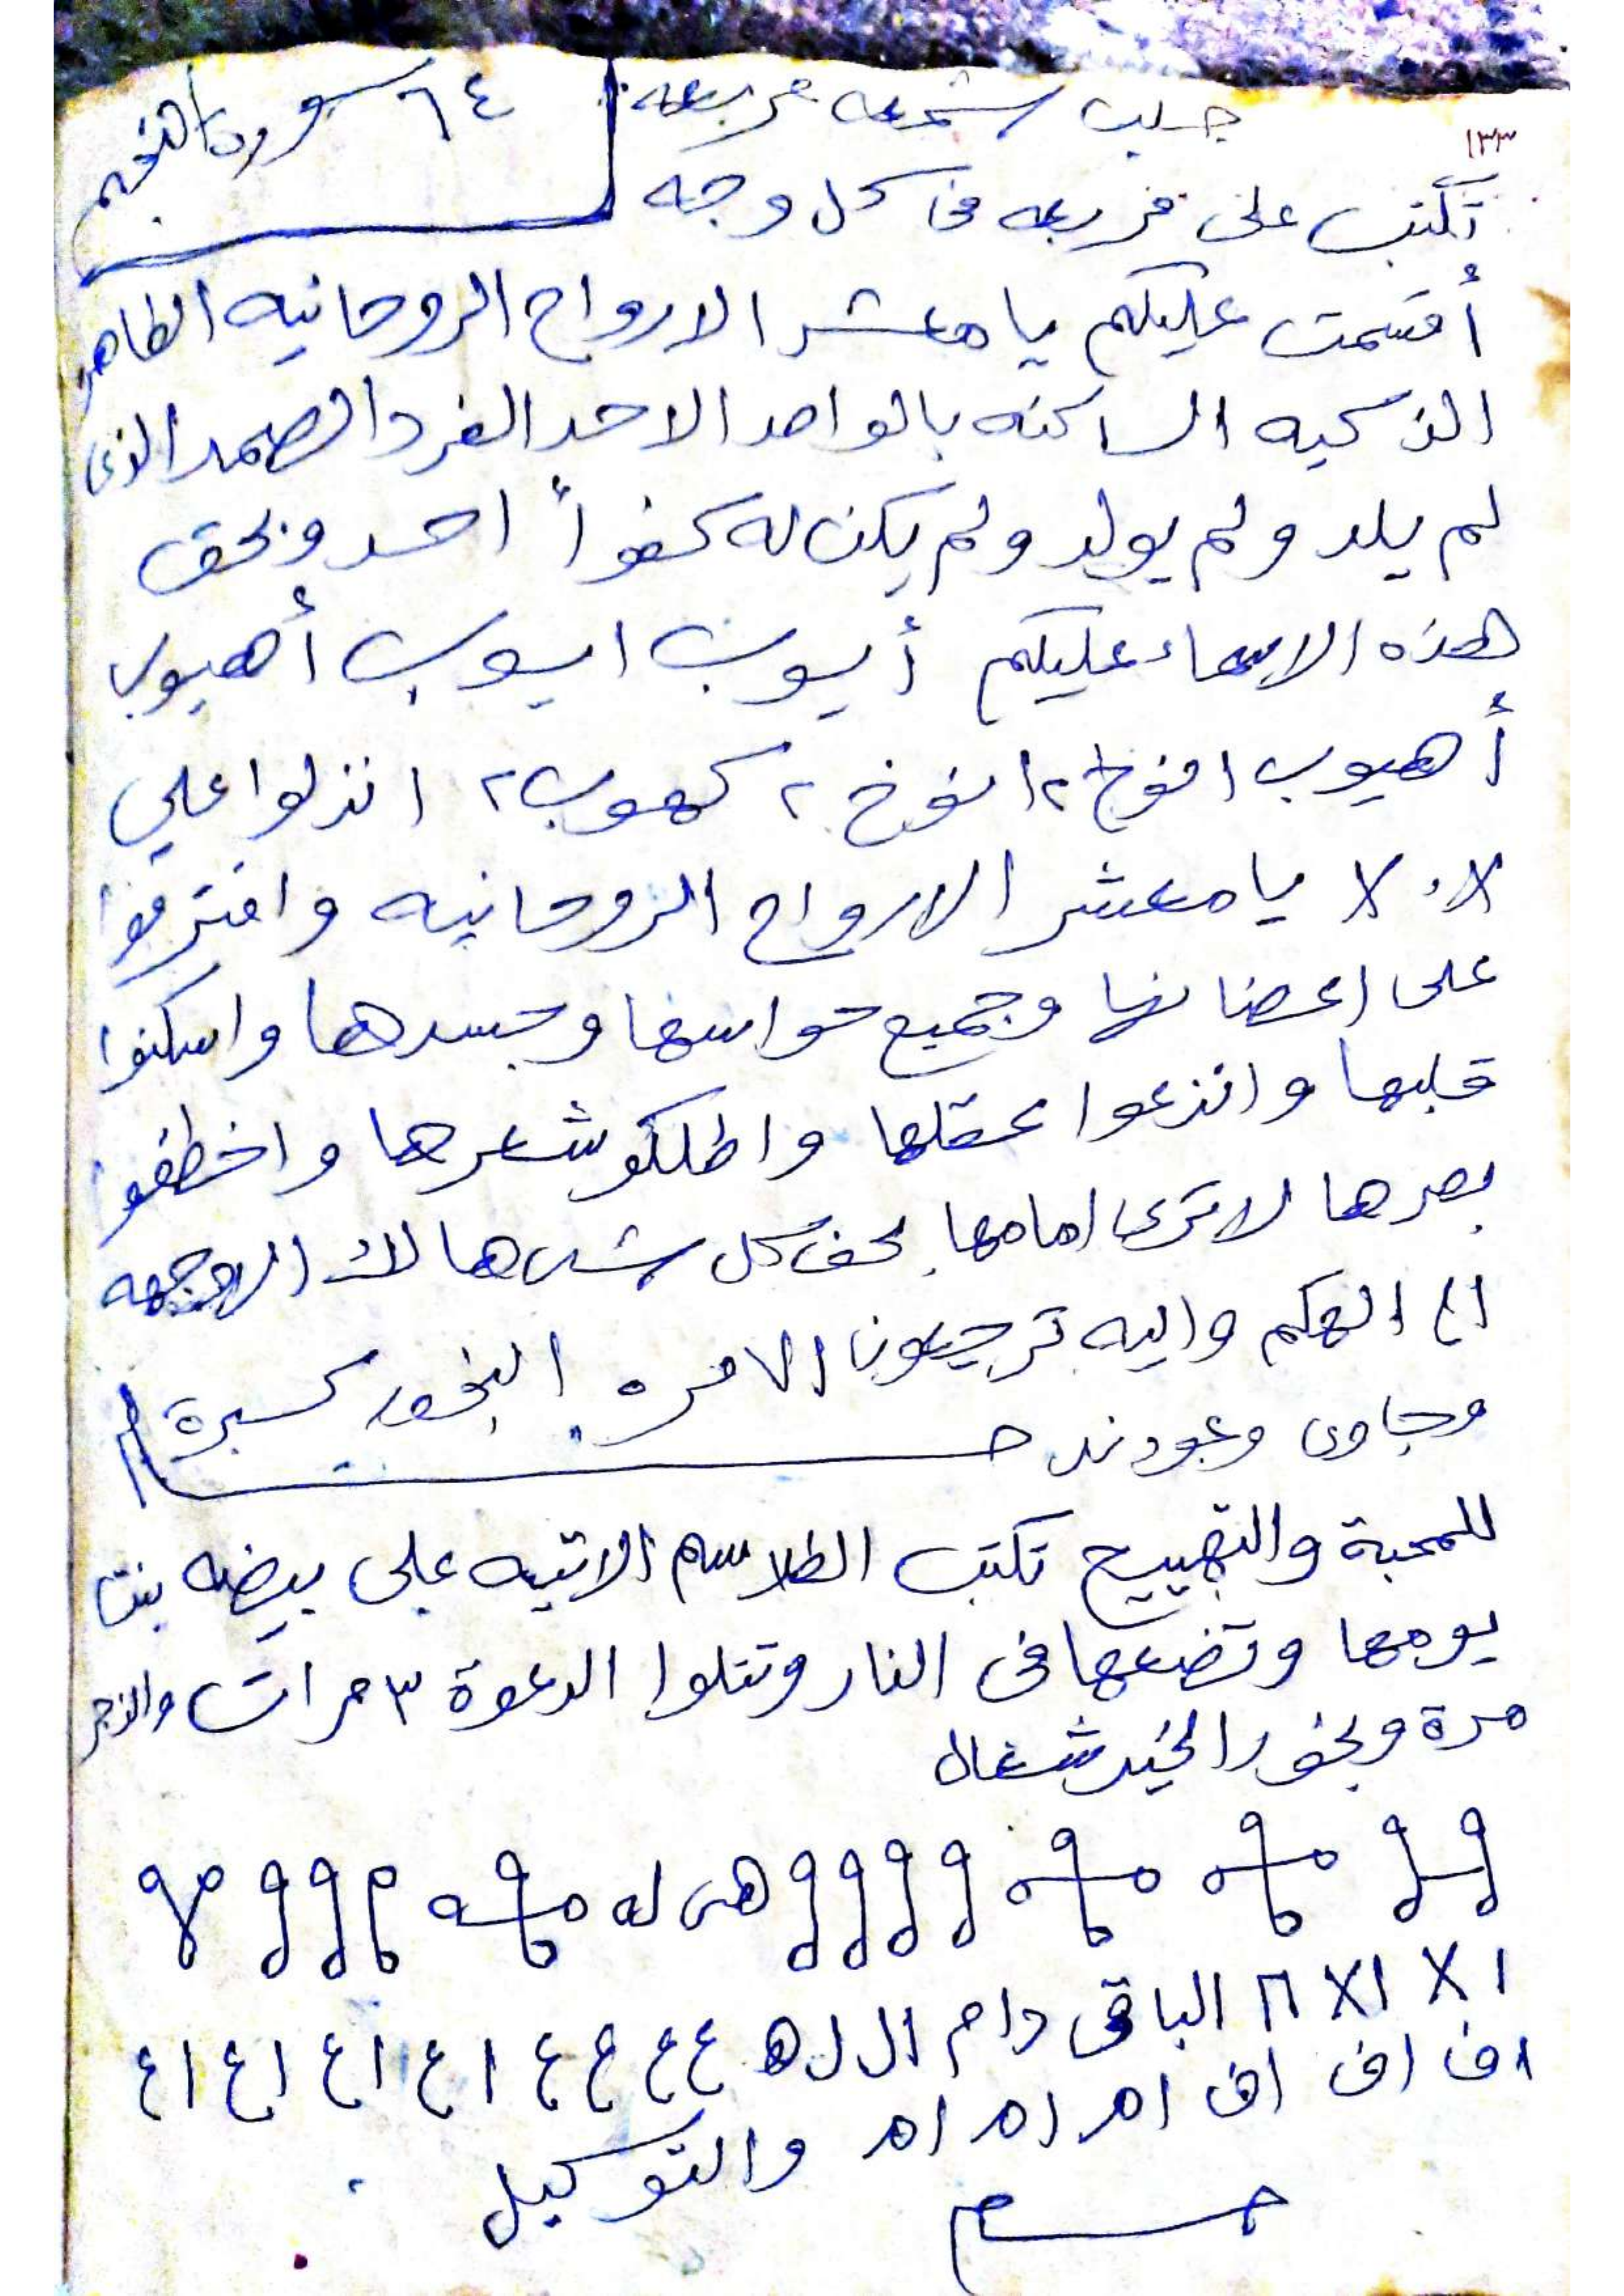 ١٣٣
جلب شمعه مربعه
٦٤ سورة النجم
تكتب على مربعه فى كل وجه
أقسمت عليكم يا معشر الارواح الروحانيه الطاهره
الذكيه الساكنه بالواحد الاحد الفرد الصمد الذى
لم يلد ولم يولد ولم يكن له كفواً احد وبحق
هذه الاسماء عليكم أيوب ايوب أهيوب
أهيوب انوخ ٢ انوخ ٢ كهوب ٢ انزلوا على
يا معشر الارواح الروحانيه وافترقوا
على اعضائها وجميع حواسها وجسدها واسكنوا
قلبها وانزعوا عقلها واطلكو شعرها واخطفوا
بصرها لا ترى امامها بحق كل شئ هالك الا وجهه
الحكم واليه ترجعون البخور كسبرة
وجاوى وعود ند
للمحبة والتهييج تكتب الطلاسم الاتيه على بيضه بنت
يومها وتضعها فى النار وتتلوا الدعوة ٣ مرات والزجر
مرة وبخور الخير شغال
هى له
الباقى دام ال ل ه ع ع ع ع اع اع اع اع
اف اف اف ام ام ام والتوكيل